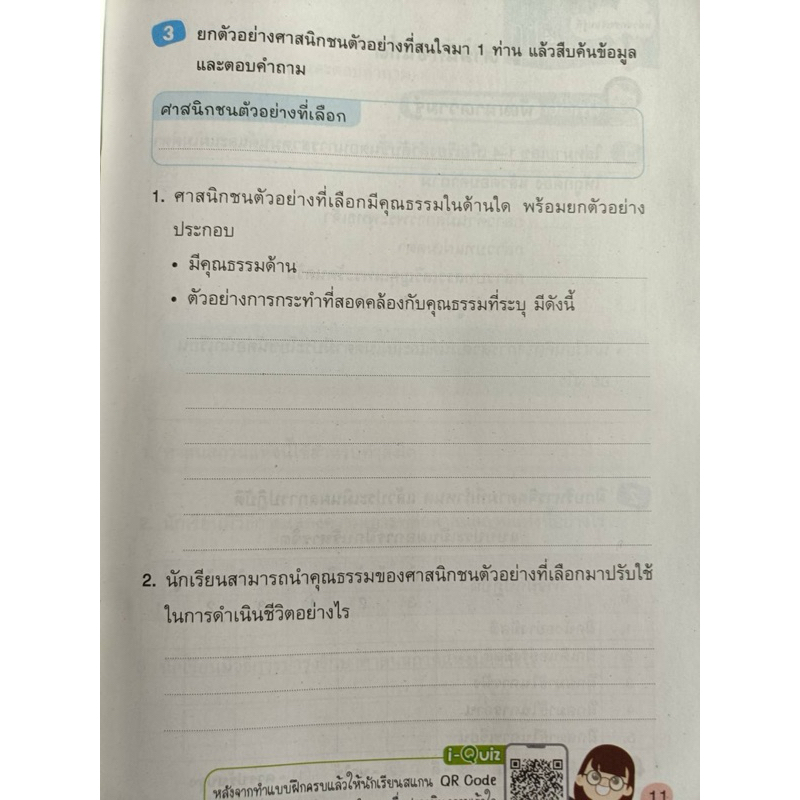 3 ยกตัวอย่างศาสนิกชนตัวอย่างที่สนใจมา 1 ท่าน แล้วสืบค้นข้อมูล
และตอบคำถาม
ศาสนิกชนตัวอย่างที่เลือก
1. ศาสนิกชนตัวอย่างที่เลือกมีคุณธรรมในด้านใด พร้อมยกตัวอย่าง
ประกอบ
• มีคุณธรรมด้าน
• ตัวอย่างการกระทำที่สอดคล้องกับคุณธรรมที่ระบุ มีดังนี้
2. นักเรียนสามารถนำคุณธรรมของศาสนิกชนตัวอย่างที่เลือกมาปรับใช้
ในการดำเนินชีวิตอย่างไร
i-Quiz
หลังจากทำแบบฝึกครบแล้วให้นักเรียนสแกน QR Code
11